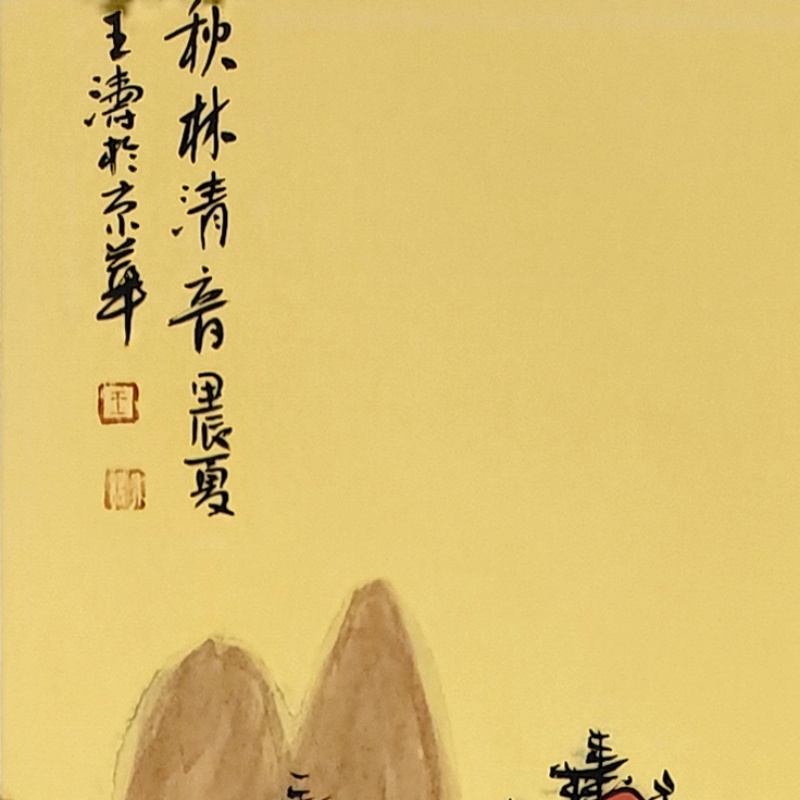 秋林清音甲辰夏
王濤於京華
王